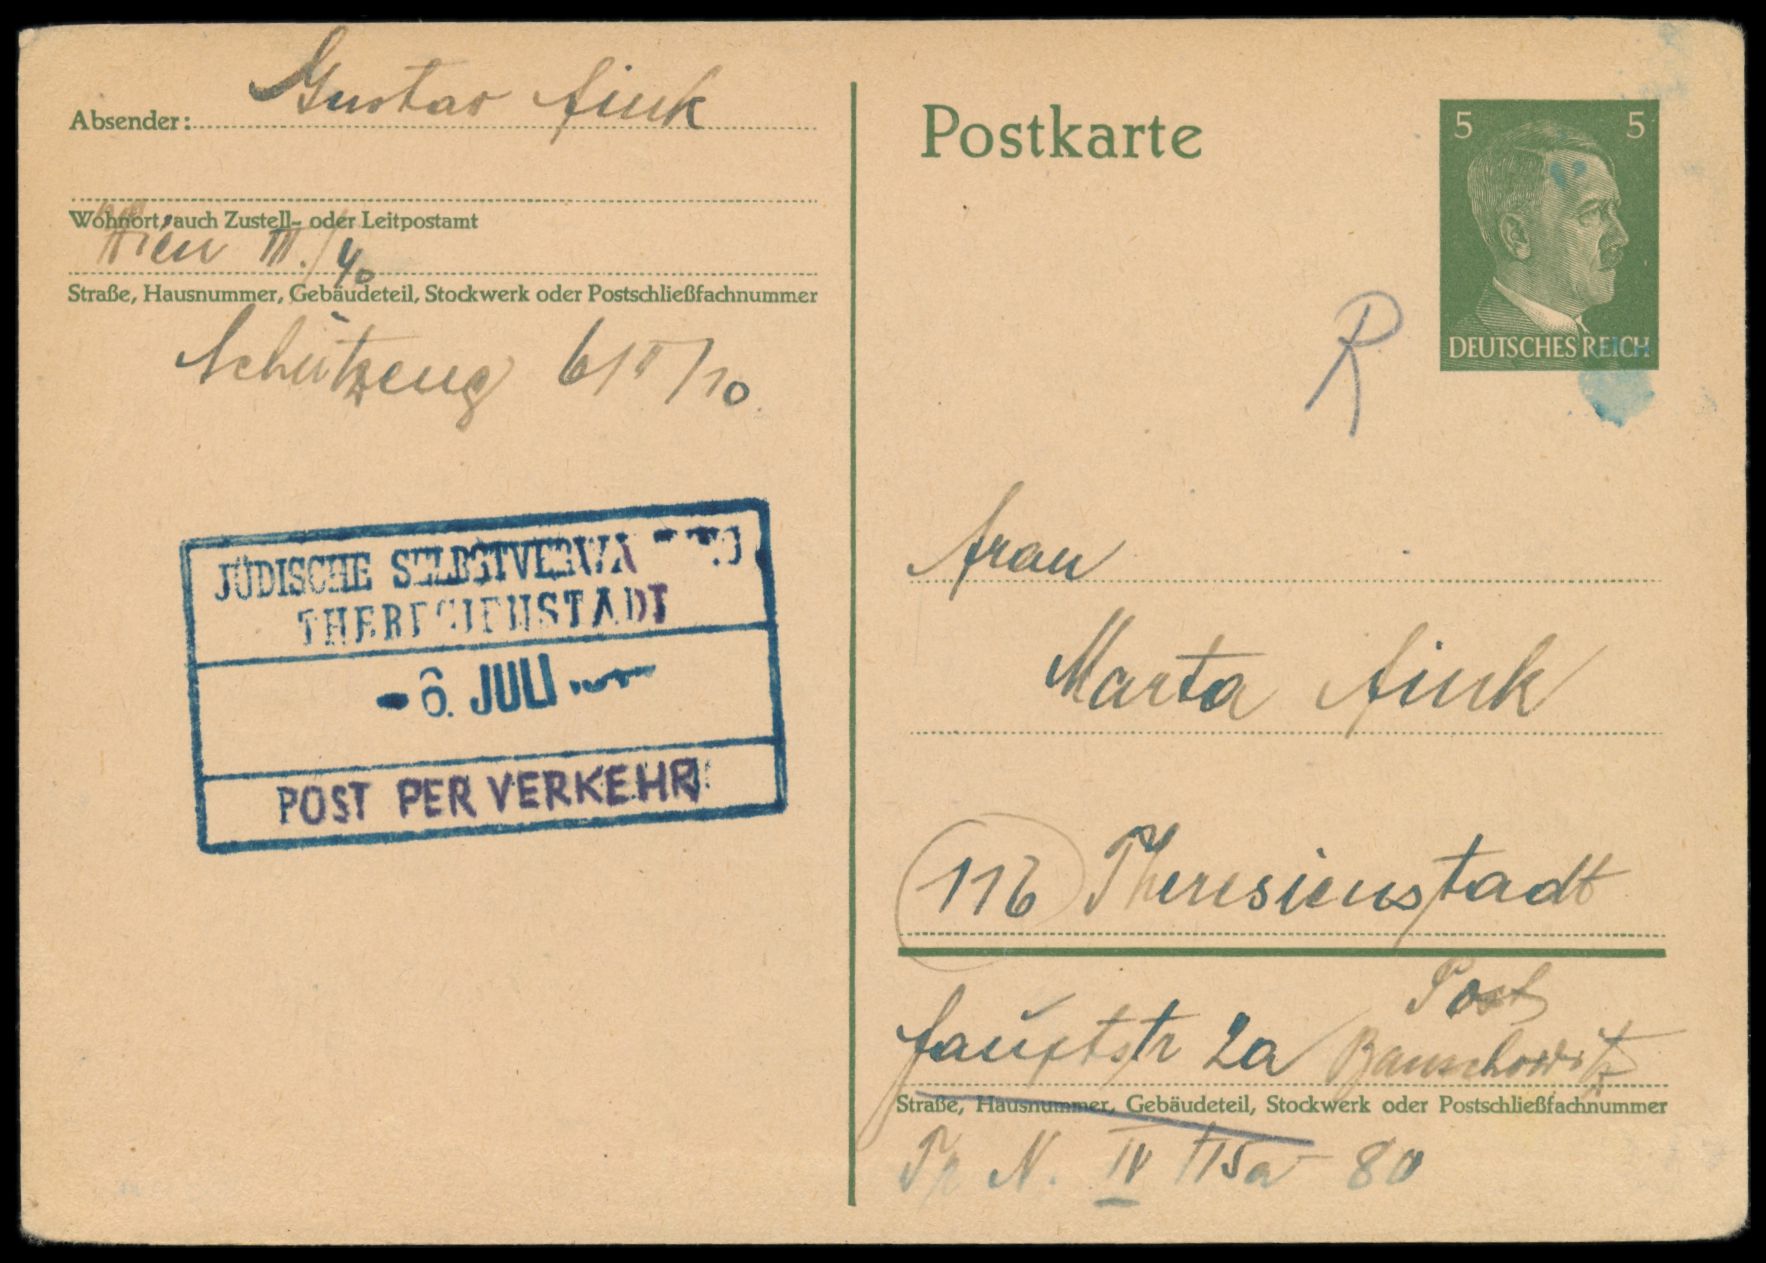 Absender: Gustav Fink
Wohnort, auch Zustell- oder Leitpostamt
Wien III./40
Straße, Hausnummer, Gebäudeteil, Stockwerk oder Postschließfachnummer
6/II/10.
JÜDISCHE SELBSTVERWA
THERESIENSTADT
- 6. JULI
POST PER VERKEHR
Postkarte
5 5
DEUTSCHES REICH
R
Frau
Marta Fink
11b Theresienstadt
Post
Hauptstr 2a Bauschowitz
Straße, Hausnummer, Gebäudeteil, Stockwerk oder Postschließfachnummer
Tr N. IV 80